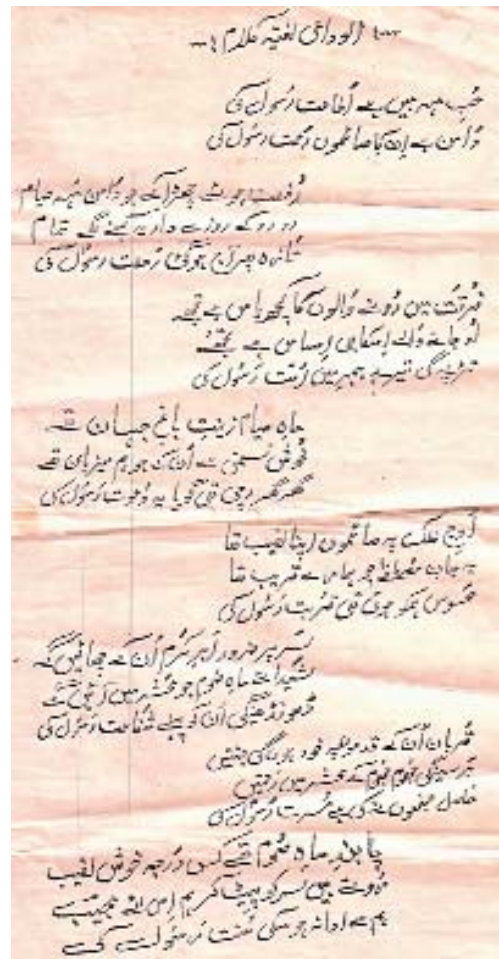 الوداعی نعتیہ کلام :-
حُب میں ہے اطاعت رسول کی
دامن ہے ان کا صائموں رحمت رسول کی
رخصت جو ہے چھڑا کے جو دامن مہ صیام
رو رو کے روزے دار یہ کہنے لگے تمام
تازہ پھر آج ہوگئی رحلت رسول کی
فرقت میں رونے والوں کا کچھ پاس ہے تجھے
او جانے والے اسکا بھی احساس ہے تجھے
تڑپے گی تیرے ہجر میں اُمت رسول کی
ماہِ صیام زینتِ باغِ جہان تھے
خوش قسمتی سے اُن کے جو ہم میزبان تھے
گھر گھر رچی تھی گویا یہ دعوت رسول کی
اوجِ فلک پہ صائموں اپنا نصیب تھا
یہ جانِ مصطفیٰ جو ہمارے قریب تھا
محسوس ہمکو ہوتی تھی قربت رسول کی
سر پر ضرور ابرِ کرم اُن کے چھائیں گے
شیدائے ماہِ صوم جو محشر میں آئیں گے
ڈھونڈھیگی اُن کو پہلے شفاعت رسول کی
قربان اُن کے قدموں پہ خود ہونگی جنتیں
برسینگی جھوم جھوم کے محشر میں رحمتیں
حاصل جنھوں نے کی ہے مسرت رسول کی
پابندِ ماہِ صوم تھے کس درجہ خوش نصیب
روتے ہیں سر کو پیٹ کر ہم اس لئے
ہم سے ادا نہ ہو سکی سُنت رسول کی